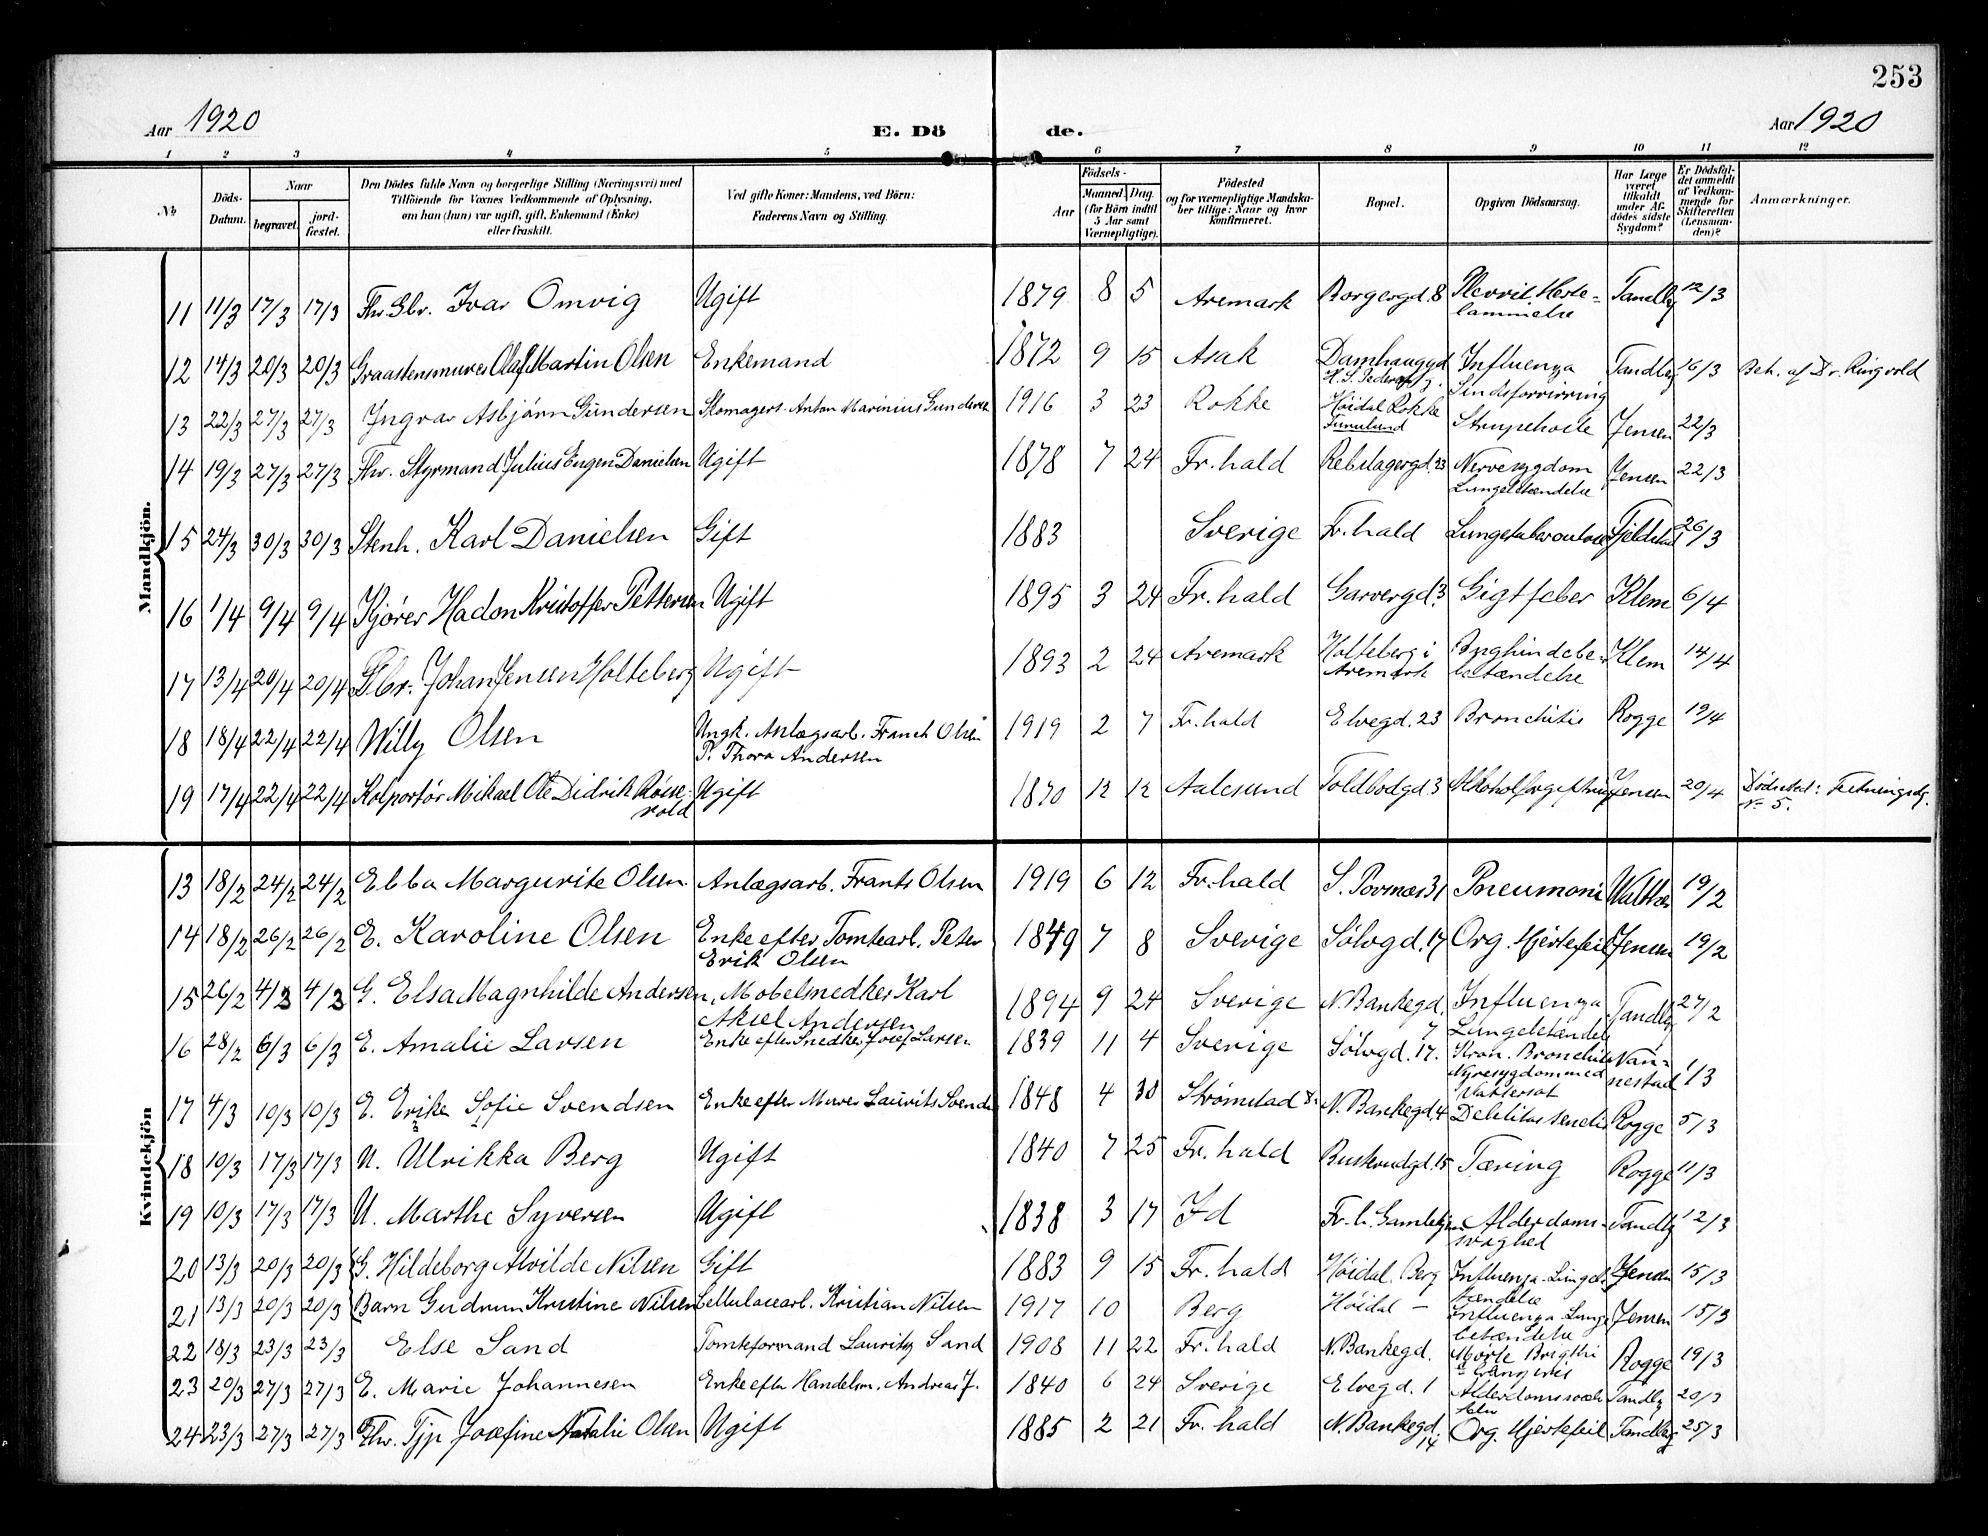 253
Aar 1920
E. Dö de.
Aar 1920
1 2 3 4 5 6 7 8 9 10 11 12
No
Döds-Datum.
Naar
begravet.
jord-fæstet.
Den Dödes fulde Navn og borgerlige Stilling (Næringsvei) med
Tilföiende for Voxnes Vedkommende af Oplysning,
om han (hun) var ugift, gift, Enkemand (Enke)
eller fraskilt.
Ved gifte Koner: Mandens, ved Börn:
Faderens Navn og Stilling.
Födsels-
Aar
Maaned. Dag.
(for Börn indtil
5 Aar samt
Værnepligtige).
Födested
og for værnepligtige Mandska-
ber tillige: Naar og hvor
konfirmeret.
Bopæl.
Opgiven Dödsaarsag.
Har Læge
været
tilkaldt
under Af-
dödes sidste
Sygdom?
Er Dödsfal-
det anmeldt
af Vedkom-
mende for
Skifteretten
(Lensman-
den)?
Anmærkninger.
Mandkjön.
11 11/3 17/3 17/3 Fhv. Gbr. Ivar Omvig Ugift 1879 8 5 Aremark Borgergd. 8 Plevrit. Herte-
lammelse Tandbg 12/3
12 14/3 20/3 20/3 Graastensmurer Olaf Martin Olsen Enkemand 1872 9 15 Asak Damhauggd
H. S. Influenza
Sindsforvirring Tandbg 16/3 Beh. af Dr. Ringvold
13 22/3 27/3 27/3 Ingvar Asbjörn Gundersen Skomagers. Anton Marinius Gundersen 1916 3 23 Rokke Höidal Rokke
Strupehoste Jensen 22/3
14 19/3 27/3 27/3 Fhv. Styrmand Julius Eugen Danielsen Ugift 1878 7 24 Fr.hald Rebslagergd. 23 Nervesygdom
Lungebetændelse Jensen 22/3
15 24/3 30/3 30/3 Stenh. Karl Danielsen Gift 1883 Sverige Fr.hald Lungetuberculose Fjeldstad 26/3
16 1/4 9/4 9/4 Kjører Hadon Kristoffer Pettersen Ugift 1895 3 24 Fr.hald Garvergd. 3 Gigtfeber Klem 6/4
17 13/4 20/4 20/4 Gbr. Johan Jensen Holteberg Ugift 1893 2 24 Aremark Holteberg i
Aremark Bughindebe-
betændelse Klem 14/4
18 18/4 22/4 22/4 Willy Olsen Ungk. Anlægsarb. Franch Olsen
P. Thora Andersen 1919 2 7 Fr.hald Elvegd. 23 Bronchitis Rogge 19/4
19 17/4 22/4 22/4 Kolportör Mikael Ole Didrik Röise-
vold Ugift 1870 12 12 Aalesund Toldbodgd. 3 Alkoholforgiftning Jensen 20/4 Dödssted: Fæstningsdg.
No 5.
Kvindekjön
13 18/2 24/2 24/2 Ebba Margurite Olsen Anlægsarb. Frants Olsen 1919 6 12 Fr.hald S. 31 Pneumoni Walther 19/2
14 18/2 26/2 26/2 E. Karoline Olsen Enke efter Tomtearb. Peter
Erik Olsen 1849 7 8 Sverige Sölvgd. 17 Org. Hjertefeil Jensen 19/2
15 26/2 4/3 4/3 G. Elsa Magnhilde Andersen, Mobelsnedker Karl
Aksel Andersen 1894 9 24 Sverige N. Bankegd.
7 Influenza
Lungebetændel Tandbg 27/2
16 28/2 6/3 6/3 E. Amalie Larsen Enke efter Snedker Josef Larsen 1839 11 4 Sverige Sölvgd. 17. Kron. Bronchit
Nyresygdom med
Vattersot Van-
nestad 1/3
17 4/3 10/3 10/3 E. Erika Sofie Svendsen Enke efter Murer Laurits Svends 1848 4 30 Strömstad N. Bankegd. 4 Debilitas senelis Rogge 5/3
18 10/3 17/3 17/3 U. Ulrikka Berg Ugift 1840 7 25 Fr.hald Buskrudgd. 15 Tæring Rogge 11/3
19 10/3 17/3 17/3 U. Marthe Syversen Ugift 1838 3 17 Id Fr.h. Gamlehjem Alderdoms-
svaghed Tandbg 12/3
20 13/3 20/3 20/3 G. Hildeborg Alvilde Nilsen Gift 1883 9 15 Fr.hald Höidal. Berg Influenza. Lungebe-
tændelse Jensen 15/3
21 13/3 20/3 20/3 Barn Gudrun Kristine Nilsen Cellulosearb. Kristian Nilsen 1917 10 Berg Höidal — Influenza Lunge
betændelse Jensen 15/3
22 18/3 23/3 23/3 Else Sand Tomteformand Lauritz Sand 1908 11 22 Fr.hald N. Bankegd. Rogge 19/3
23 20/3 27/3 27/3 E. Marie Johannesen Enke efter Handelsm. Andreas J. 1840 6 24 Sverige Elvegd. 1 Alderdomssvæk-
kelse Tandbg 20/3
24 23/3 27/3 27/3 Fhv. Tjp Josefine Natalie Olsen Ugift 1885 2 21 Fr.hald N. Bankegd.
14 Org. Hjertefeil Tandbg 25/3